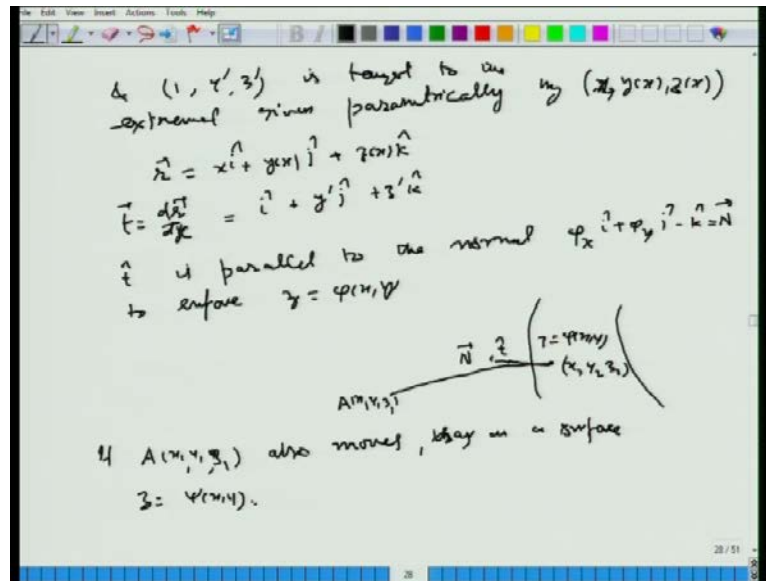 File Edit View Insert Actions Tools Help
& (1, y', z') is tangent to the
extremal given parametrically by (x, y(x), z(x))
r⃗ = x î + y(x) ĵ + z(x) k̂
t⃗ = dr⃗/dx = î + y' ĵ + z' k̂
t̂ is parallel to the normal φ_x î + φ_y ĵ - k̂ = N⃗
to surface z = φ(x, y)
N⃗ t̂
z = φ(x,y)
(x_2 y_2 z_2)
A(x_1, y_1, z_1)
If A(x_1, y_1, z_1) also moves, say on a surface
z = ψ(x,y).
28/51
28